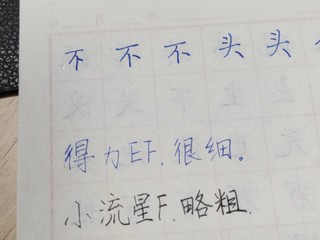 不 不 不 头 头
得力EF.很细。
小流星F.略粗.